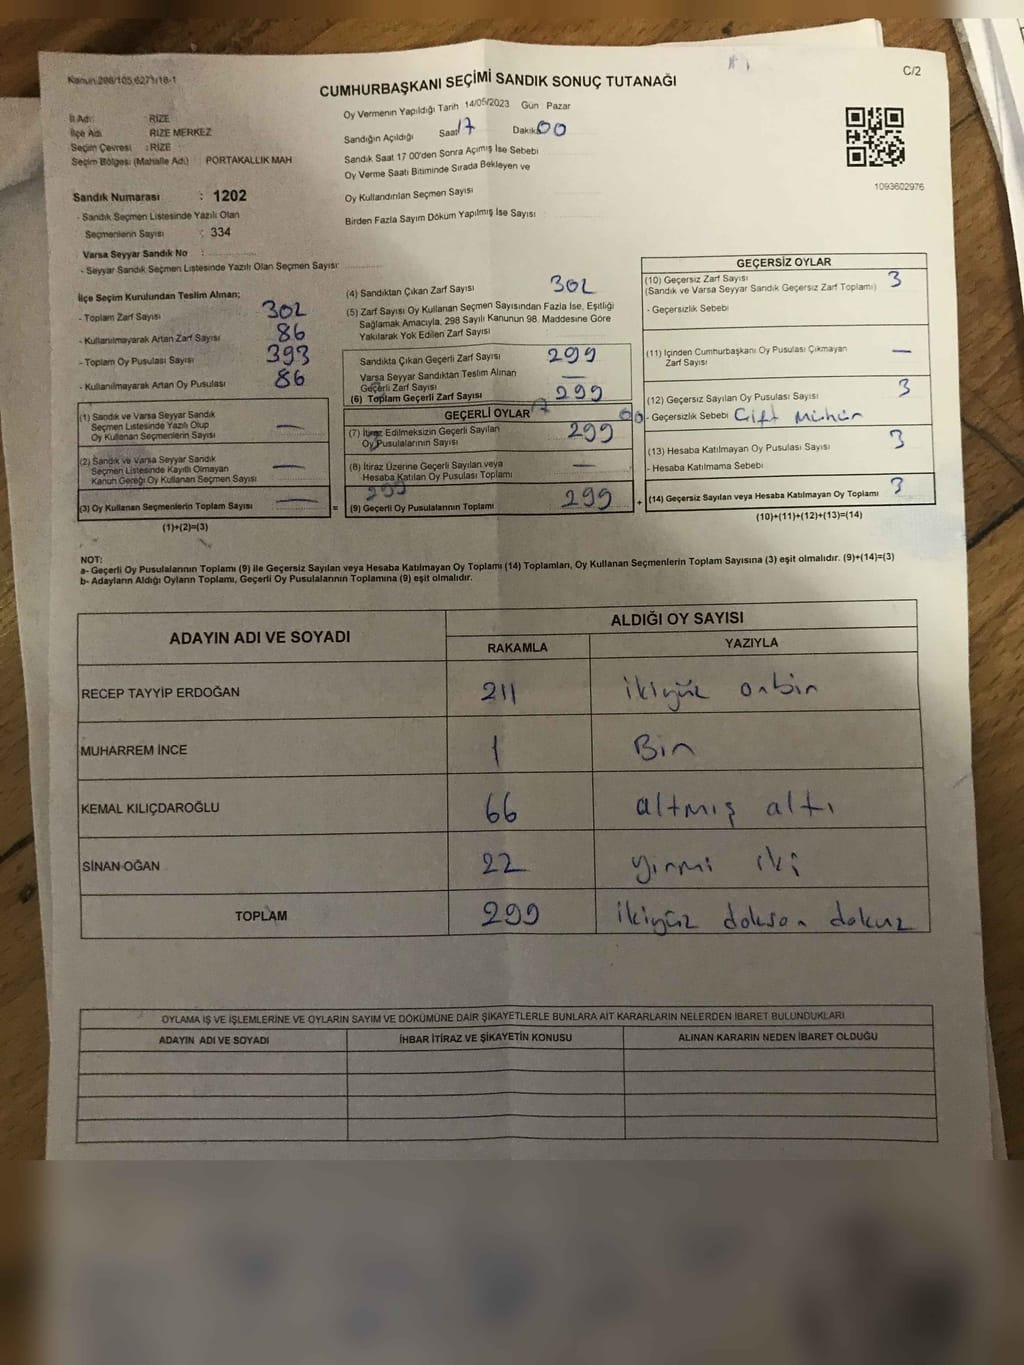 Kanun 298/105,6271/18-1
C/2
CUMHURBAŞKANI SEÇİMİ SANDIK SONUÇ TUTANAĞI
İl Adı : RİZE
İlçe Adı RİZE MERKEZ
Seçim Çevresi : RİZE
Seçim Bölgesi (Mahalle Adı) : PORTAKALLIK MAH
Oy Vermenin Yapıldığı Tarih 14/05/2023 Gün Pazar
Sandığın Açıldığı Saat 17 Dakika 00
Sandık Saat 17 00'den Sonra Açımış İse Sebebi
Oy Verme Saati Bitiminde Sırada Bekleyen ve
Oy Kullandırılan Seçmen Sayısı
Birden Fazla Sayım Döküm Yapılmış İse Sayısı
1093602976
Sandık Numarası : 1202
- Sandık Seçmen Listesinde Yazılı Olan
Seçmenlerin Sayısı : 334
Varsa Seyyar Sandık No :
- Seyyar Sandık Seçmen Listesinde Yazılı Olan Seçmen Sayısı:
İlçe Seçim Kurulundan Teslim Alınan;
- Toplam Zarf Sayısı 302
- Kullanılmayarak Artan Zarf Sayısı 86
- Toplam Oy Pusulası Sayısı 393
- Kullanılmayarak Artan Oy Pusulası 86
(1) Sandık ve Varsa Seyyar Sandık
Seçmen Listesinde Yazılı Olup
Oy Kullanan Seçmenlerin Sayısı —
(2) Sandık ve Varsa Seyyar Sandık
Seçmen Listesinde Kayıtlı Olmayan
Kanun Gereği Oy Kullanan Seçmen Sayısı —
(3) Oy Kullanan Seçmenlerin Toplam Sayısı —
(1)+(2)=(3)
(4) Sandıktan Çıkan Zarf Sayısı 302
(5) Zarf Sayısı Oy Kullanan Seçmen Sayısından Fazla İse, Eşitliği
Sağlamak Amacıyla, 298 Sayılı Kanunun 98. Maddesine Göre
Yakılarak Yok Edilen Zarf Sayısı
Sandıkta Çıkan Geçerli Zarf Sayısı 299
Varsa Seyyar Sandıktan Teslim Alınan
Geçerli Zarf Sayısı —
(6) Toplam Geçerli Zarf Sayısı 299
GEÇERLİ OYLAR 17 00
(7) İtiraz Edilmeksizin Geçerli Sayılan
Oy Pusulalarının Sayısı 299
(8) İtiraz Üzerine Geçerli Sayılan veya
Hesaba Katılan Oy Pusulası Toplamı —
299
= (9) Geçerli Oy Pusulalarının Toplamı 299 +
GEÇERSİZ OYLAR
(10) Geçersiz Zarf Sayısı 3
(Sandık ve Varsa Seyyar Sandık Geçersiz Zarf Toplamı)
- Geçersizlik Sebebi
(11) İçinden Cumhurbaşkanı Oy Pusulası Çıkmayan
Zarf Sayısı —
(12) Geçersiz Sayılan Oy Pusulası Sayısı 3
- Geçersizlik Sebebi Çift Mühür
(13) Hesaba Katılmayan Oy Pusulası Sayısı 3
- Hesaba Katılmama Sebebi
(14) Geçersiz Sayılan veya Hesaba Katılmayan Oy Toplamı 3
(10)+(11)+(12)+(13)=(14)
NOT:
a- Geçerli Oy Pusulalarının Toplamı (9) ile Geçersiz Sayılan veya Hesaba Katılmayan Oy Toplamı (14) Toplamları, Oy Kullanan Seçmenlerin Toplam Sayısına (3) eşit olmalıdır. (9)+(14)=(3)
b- Adayların Aldığı Oyların Toplamı, Geçerli Oy Pusulalarının Toplamına (9) eşit olmalıdır.
ADAYIN ADI VE SOYADI
ALDIĞI OY SAYISI
RAKAMLA YAZIYLA
RECEP TAYYİP ERDOĞAN 211 ikiyüz onbir
MUHARREM İNCE 1 Bir
KEMAL KILIÇDAROĞLU 66 altmış altı
SİNAN OĞAN 22 yirmi iki
TOPLAM 299 ikiyüz doksan dokuz
OYLAMA İŞ VE İŞLEMLERİNE VE OYLARIN SAYIM VE DÖKÜMÜNE DAİR ŞİKAYETLERLE BUNLARA AİT KARARLARIN NELERDEN İBARET BULUNDUKLARI
ADAYIN ADI VE SOYADI İHBAR İTİRAZ VE ŞİKAYETİN KONUSU ALINAN KARARIN NEDEN İBARET OLDUĞU